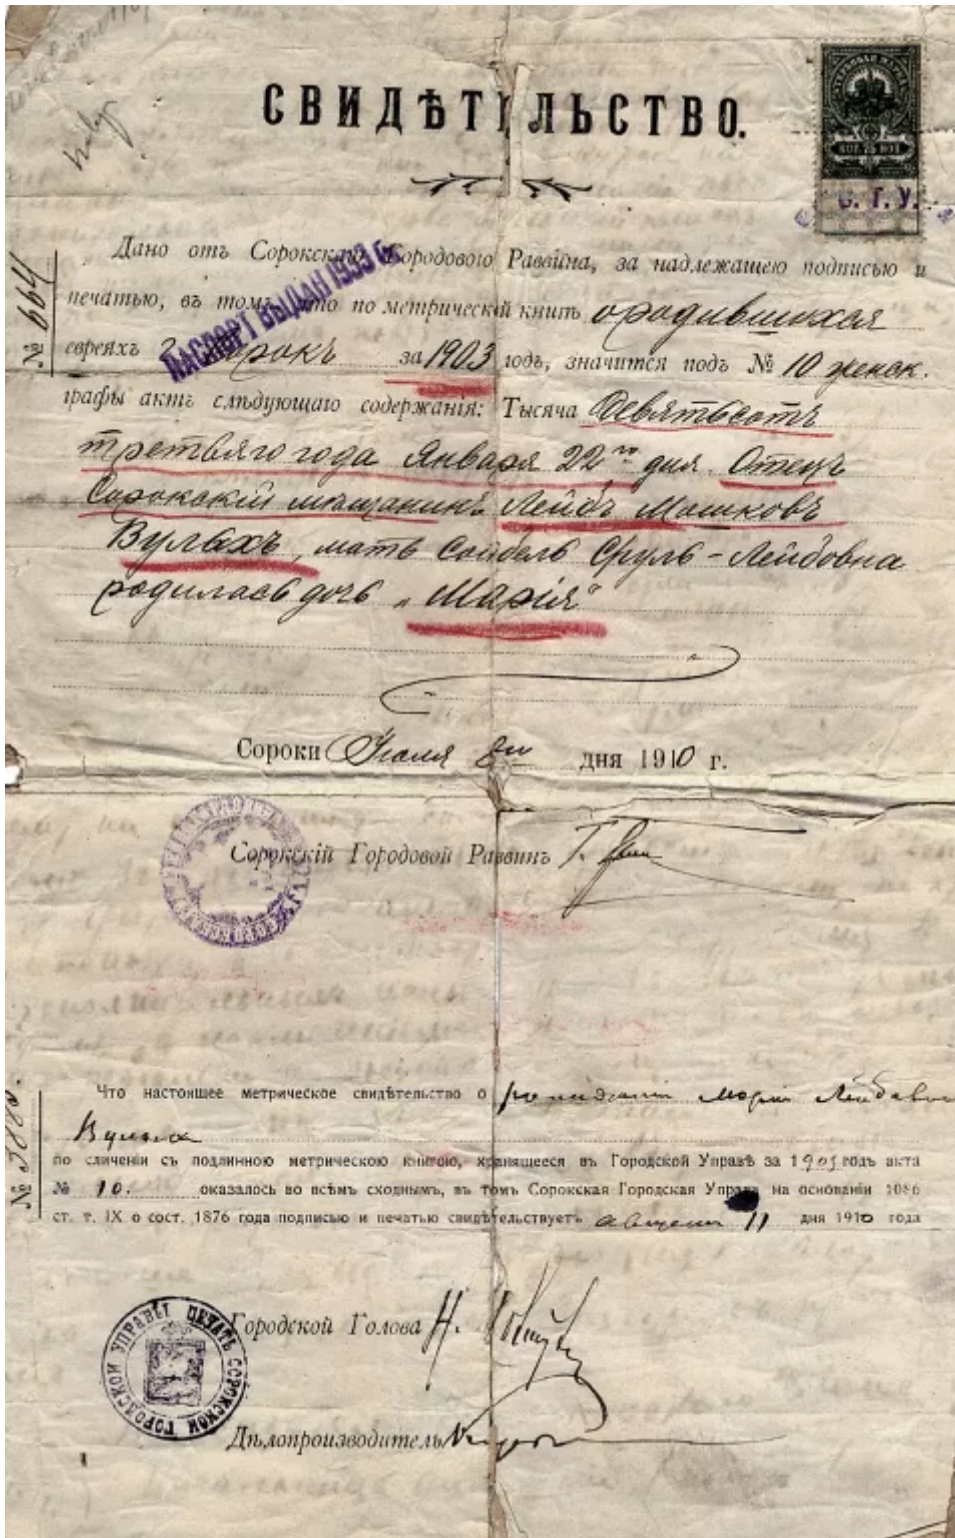 СВИДѢТЕЛЬСТВО.
КОП. 75 КОП.
С. Г. У.
№ 664
Дано отъ Сорокскаго Городового Раввина, за надлежащею подписью и
печатью, въ томъ, что по метрической книгѣ о родившихся
ПАСПОРТ ВЫДАН 1933 г.
евреяхъ г. Сорокъ за 1903 годъ, значится подъ № 10 женск.
графы актъ слѣдующаго содержанія: Тысяча Девятьсотъ
третьяго года Января 22го дня. Отецъ
Сорокскій мѣщанинъ Лейбъ Мошковъ
Вульхъ, мать Сойбель Сруль-Лейбовна
родилась дочь „Марія"
Сороки Іюля 8го дня 1910 г.
Сорокскій Городовой Раввинъ Г.
Что настоящее метрическое свидѣтельство о рождении Марiи Лейбовны
Вульха
№
по сличеніи съ подлинною метрическою книгою, хранящееся въ Городской Управѣ за 1903 годъ акта
№ 10. оказалось во всѣмъ сходнымъ, въ томъ Сорокская Городская Управа на основаніи 1086
ст. т. IX о сост. 1876 года подписью и печатью свидѣтельствуетъ августа 11 дня 1910 года
Городской Голова Н.
ПЕЧАТЬ СОРОКСКОЙ ГОРОДСКОЙ УПРАВЫ
Дѣлопроизводитель